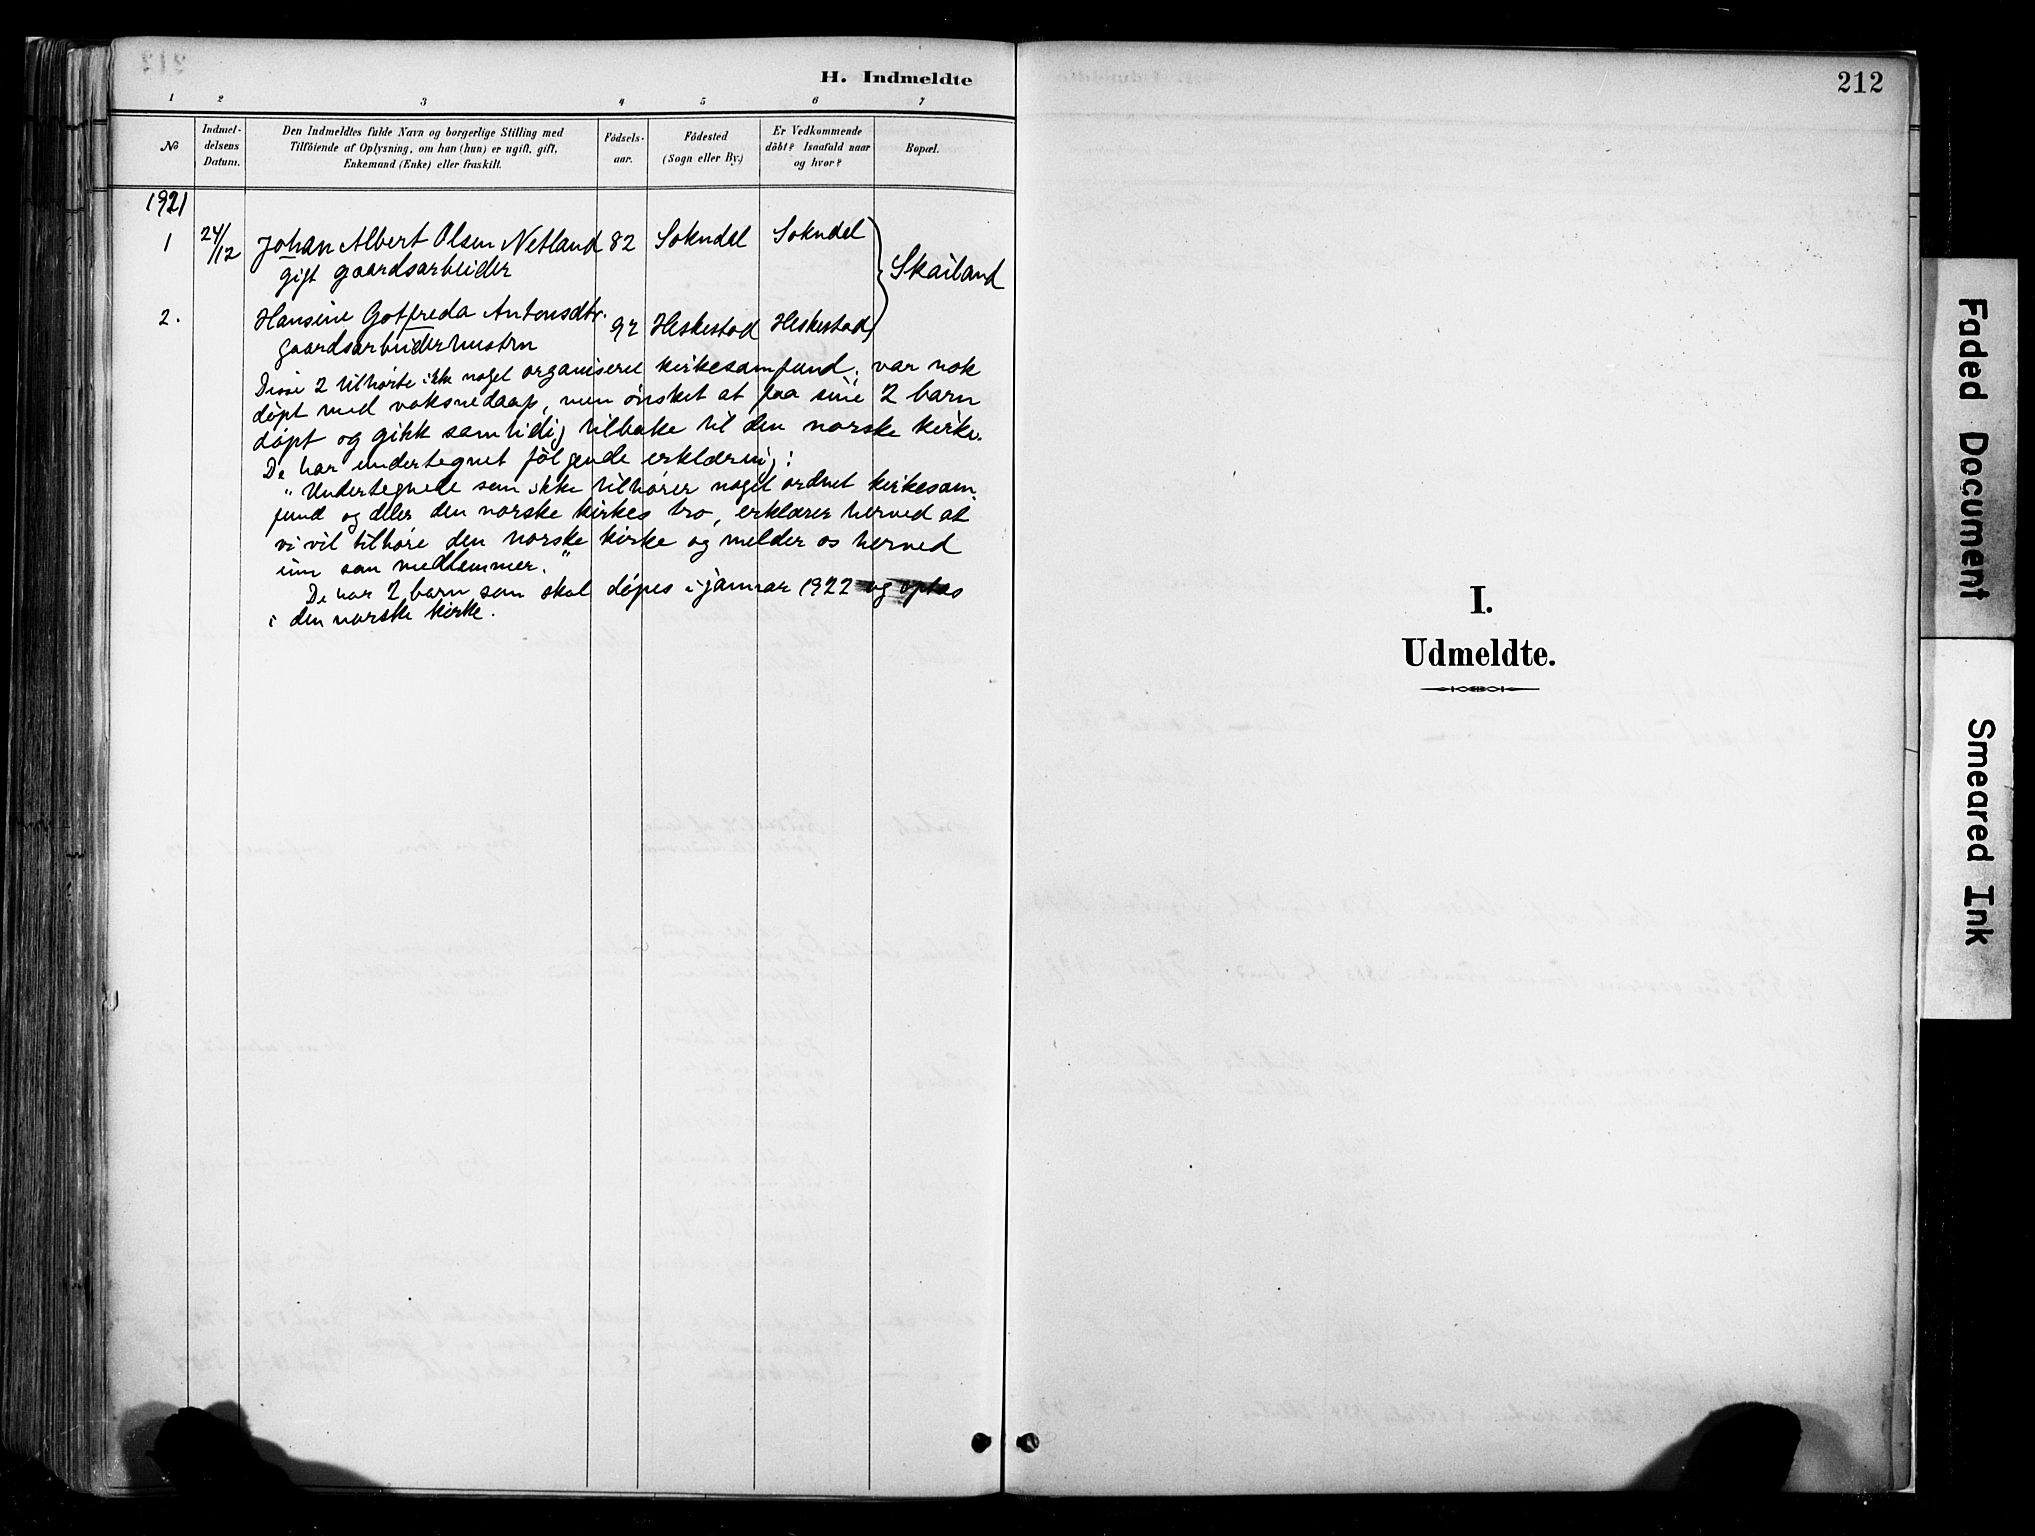 H. Indmeldte
1 2 3 4 5 6 7
No
Indmel-
delsens
Datum.
Den Indmeldtes fulde Navn og borgerlige Stilling med
Tilföiende af Oplysning, om han (hun) er ugift, gift,
Enkemand (Enke) eller fraskilt.
Födsels-
aar.
Födested
(Sogn eller By.)
Er Vedkommende
döbt? Isaafald naar
og hvor?
Bopæl.
1921
1 24/12 Johan Albert Olsen Netland 82 Sokndal Sokndal
gift gaardsarbeider
Skailand
2. Hansine Gotfreda Antonsdtr. 92 Heskestad Heskestad
gaardsarbeiderhustru
Disse 2 tilhørte ikke noget organiseret kirkesamfund, var nok
døpt med voksnedaap, men ønsket at faa sine 2 barn
døpt og gikk samtidig tilbake til den norske kirke.
De har undertegnet følgende erklæring:
"Undertegnede som ikke tilhører noget ordnet kirkesam-
fund og deler den norske kirkes tro, erklærer herved at
vi vil tilhøre den norske kirke og melder os herved
inn som medlemmer."
De har 2 barn som skal døpes i januar 1922 og optas
i den norske kirke.
212
I.
Udmeldte.
Faded Document
Smeared Ink